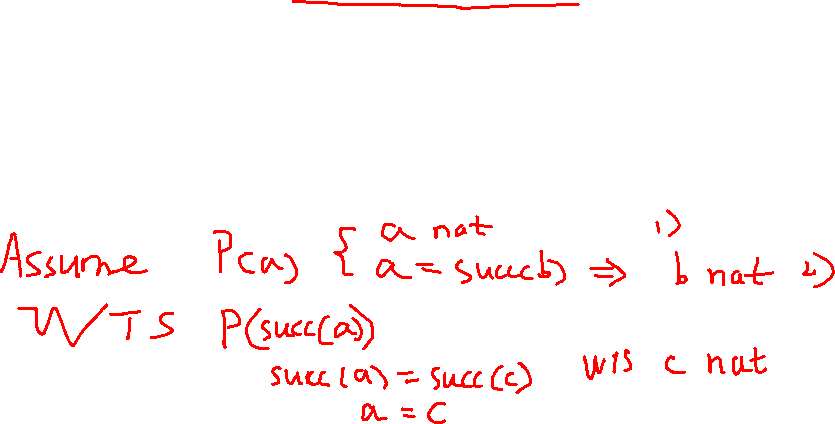 a nat 1)
Assume P(a) { a = succ(b) ⇒ b nat 2)
WTS P(succ(a))
succ(a) = succ(c) WTS c nat
a = c